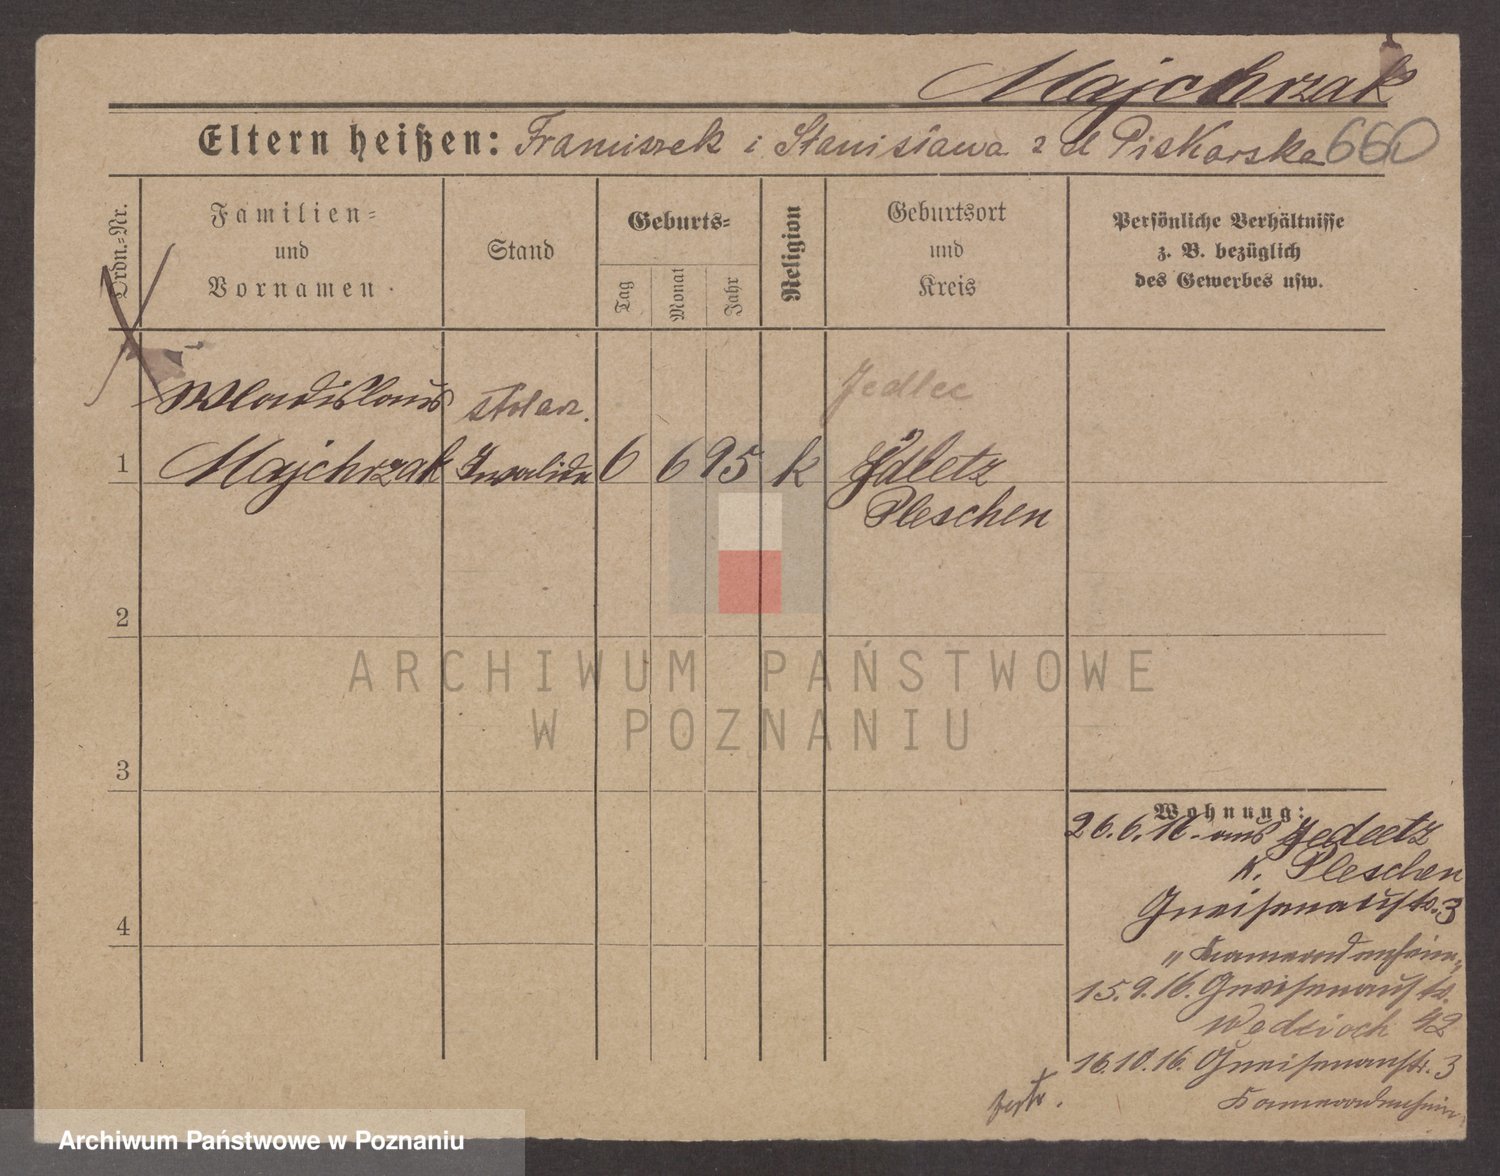 Majchrzak
Eltern heißen: Franciszek i Stanisława z d Piskorska 660
Ordn.=Nr.
Familien=
und
Vornamen
Stand
Geburts=
Tag
Monat
Jahr
Religion
Geburtsort
und
Kreis
Persönliche Verhältnisse
z. B. bezüglich
des Gewerbes usw.
Wladislaus stolarz. Jedlec
1 Majchrzak Invalide 6 6 95 k Jedletz
Pleschen
2
3
4
ARCHIWUM PAŃSTWOWE
W POZNANIU
Wohnung:
26.6.16. aus Jedletz
K. Pleschen
Gneisenaustr. 3
"Kameradenheim"
15.9.16. Gneisenaustr.
42
16.10.16. Gneisenaustr. 3
Kameradenheim
Archiwum Państwowe w Poznaniu